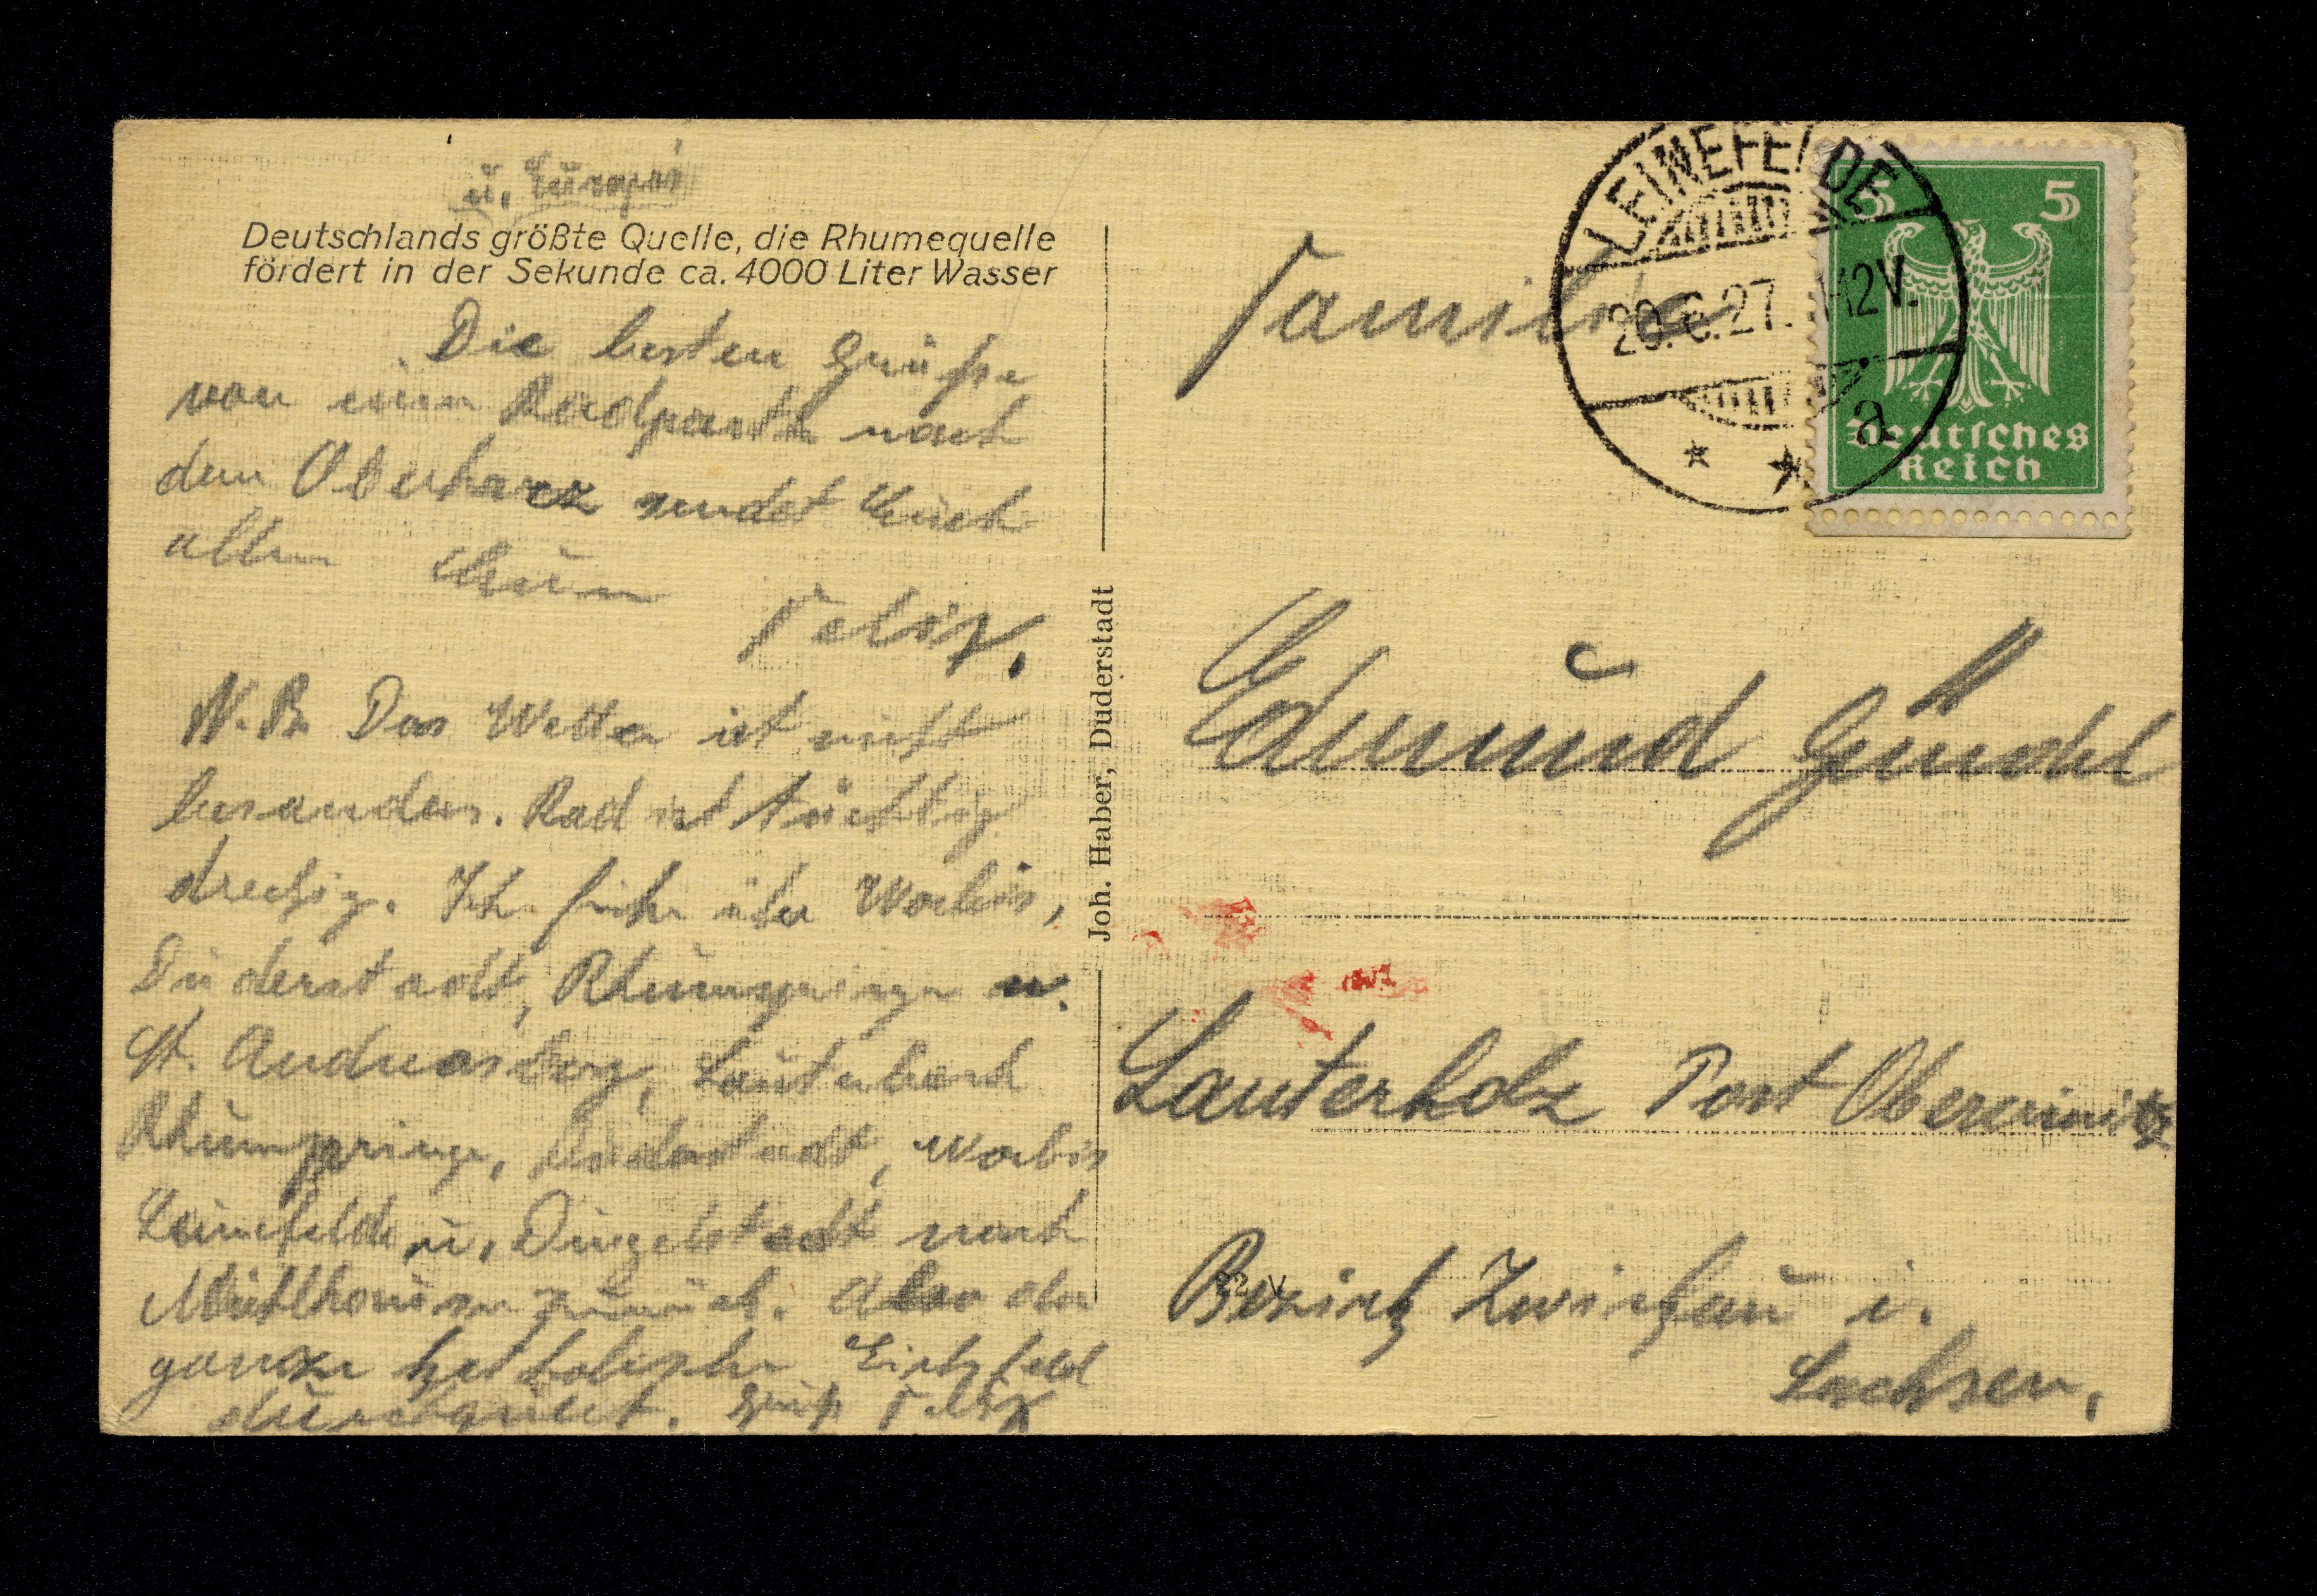 u. Europas
Deutschlands größte Quelle, die Rhumequelle
fördert in der Sekunde ca. 4000 Liter Wasser
Die besten Grüße
von einer Radpartie nach
dem Oberharz sendet Euch
allen Euer
Felix.
N. B. Das Wetter ist nicht
besonders. Rad ist tüchtig
dreckig. Ich fuhr über Worbis,
Duderstadt, Rhumspringe n.
St. Andreasberg, Lauterberg
Rhumspringe, Duderstadt, Worbis
Leinefelde u. Dingelstedt nach
Mühlhausen zurück. Also das
ganze katholische Eichsfeld
durchquert. Gruß Felix
Joh. Haber, Duderstadt
LEINEFELDE
20.6.27. 12V.
a
5 5
Deutsches
Reich
Familie
Edmund Gündel
Lauterholz Post Obercrinitz
Bezirk Zwickau i.
Sachsen.